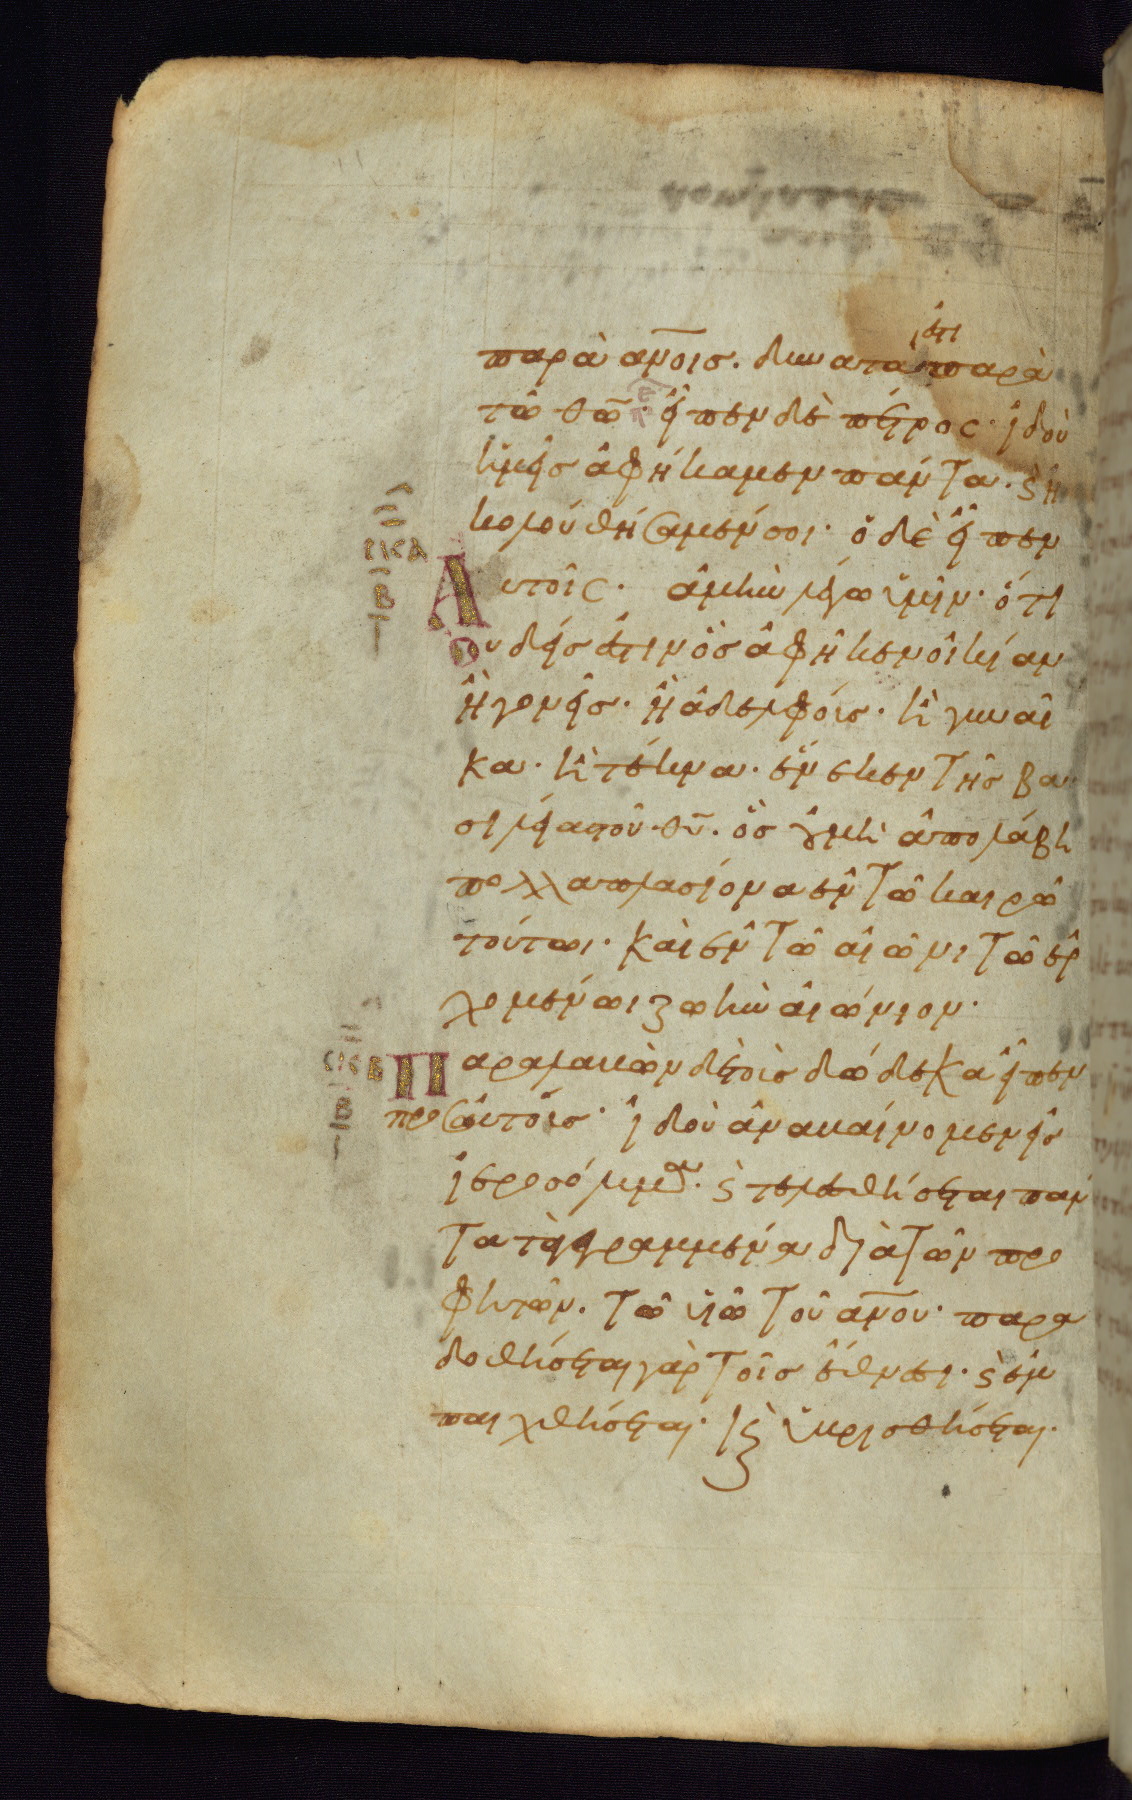 παρὰ ἀνοις. δυνατα ἐστι παρὰ
τῶ θῶ. εἶπεν δὲ πέτρος. ἰδοὺ
ἡμεῖς ἀφήκαμεν πάντα. ϗ ἠ
κολούθησαμέν σοι. ὁ δὲ εἶπεν
Αυτοῖς. ἀμὴν λέγω ὑμῖν. ὅτι
Ουδείς ἐστιν ὃς ἀφῆκεν οἰκίαν
ἢ γονεῖς. ἢ ἀδελφόις. ἢ γυναῖ
κα. ἢ τέκνα. ἕνεκεν τῆς βα
σιλείας τοῦ θῦ. ὃς οὐ μὴ ἀπολάβη
πολλαπλασίονα ἐν τῶ καιρῶ
τούτωι. καὶ ἐν τῶ αἰῶνι τῶ ἐρ
χομένωι ζωὴν αἰώνιον.
σκα
β
ι
Παραλαβὼν δὲ τοὶς δώδεκα εἶπεν
προς αὐτόις. ἰδοὺ ἀναβαίνομεν εἰς
ἱεροσόλυμα. ϗ τελεσθήσεται πάν
τα τὰ γεγραμμένα διὰ τῶν προ
φητῶν. τῶ υἱῶ τοῦ ἀνου. παρα
δοθήσεται γὰρ τοῖς ἔθνεσι. ϗ ἐμ
παιχθήσεται. ϗ ὑβρισθήσεται.
σκβ
β
ι